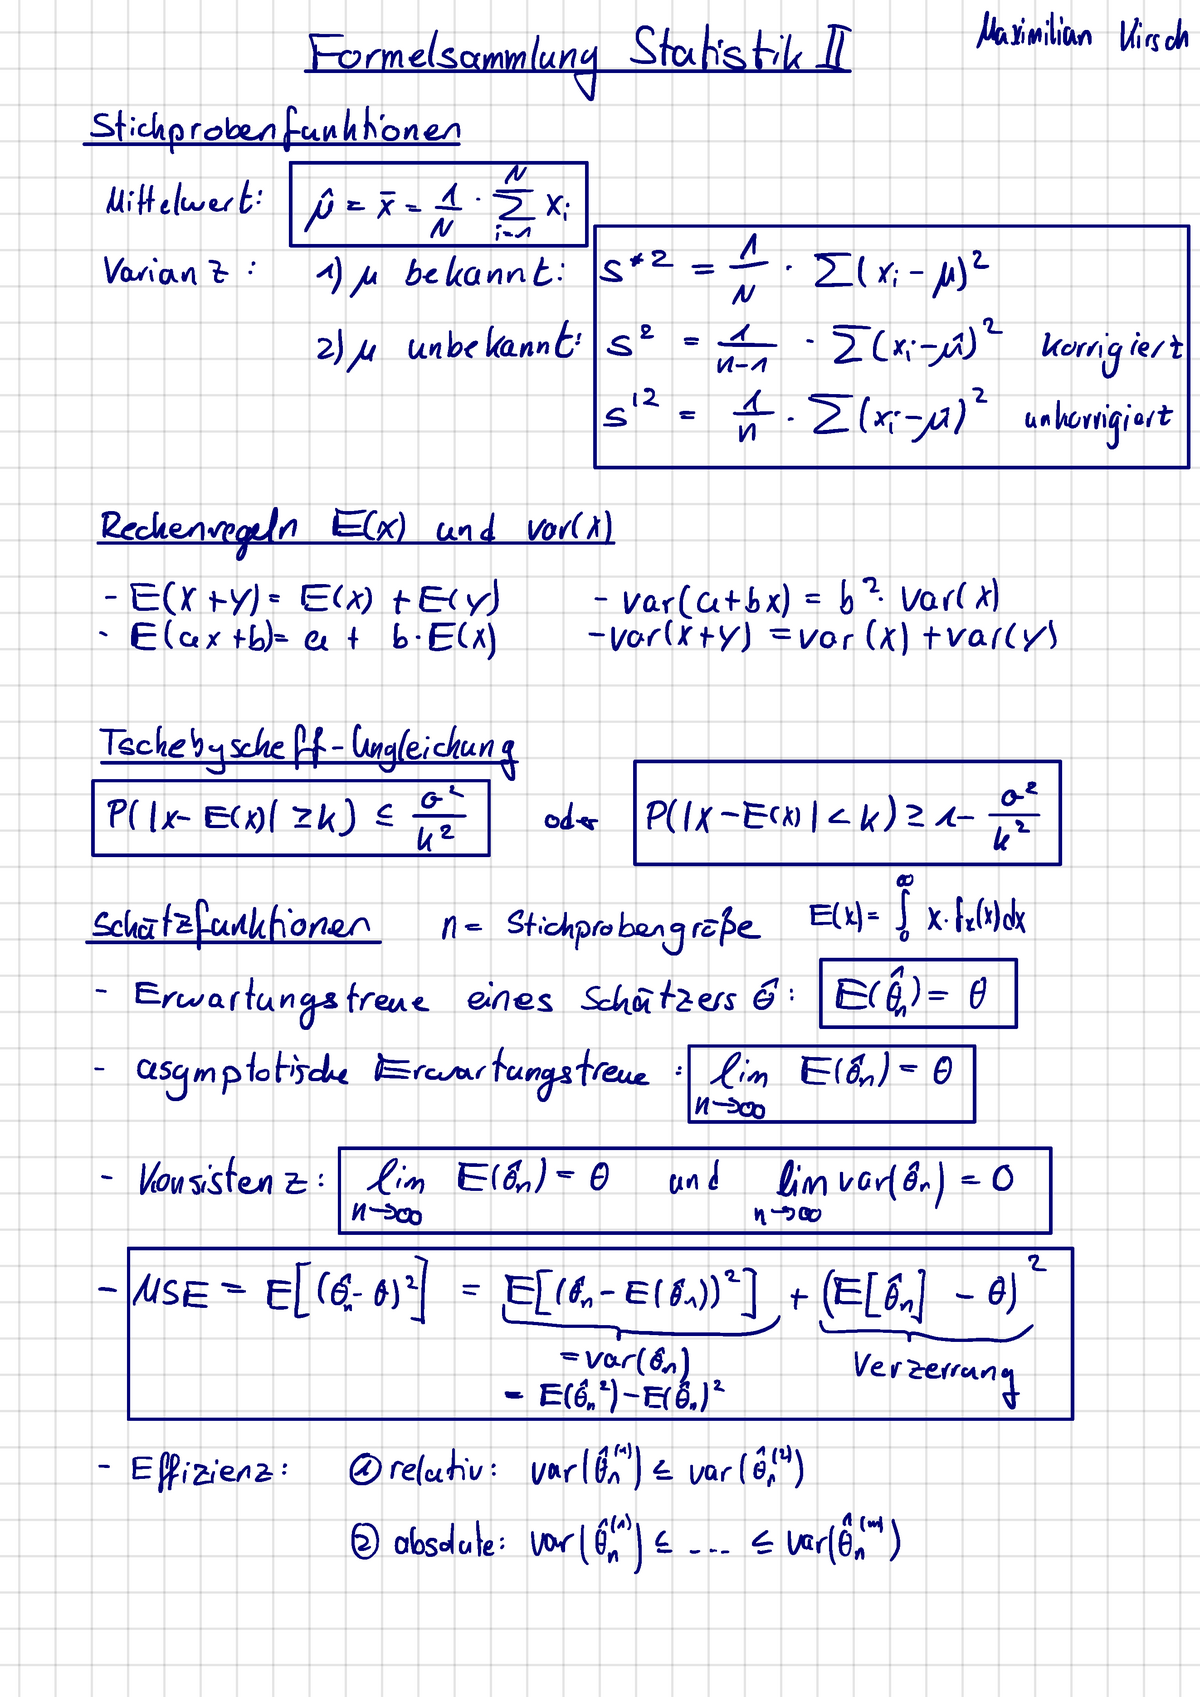 Maximilian Kirsch
Formelsammlung Statistik II
Stichprobenfunktionen
Mittelwert: μ̂ = x̄ = 1/N · ∑_{i=1}^{N} x_i
Varianz: 1) μ bekannt: s*² = 1/N · ∑(x_i - μ)²
2) μ unbekannt: s² = 1/(n-1) · ∑(x_i - μ̂)² korrigiert
s'² = 1/n · ∑(x_i - μ̂)² unkorrigiert
Rechenregeln E(x) und var(x)
- E(X+Y) = E(x) + E(y) - var(a+bx) = b² · var(x)
- E(ax+b) = a + b·E(x) - var(x+y) = var(x) + var(y)
Tschebyscheff-Ungleichung
P(|x - E(x)| ≥ k) ≤ σ²/k² oder P(|X - E(x)| < k) ≥ 1 - σ²/k²
Schätzfunktionen n = Stichprobengröße E(x) = ∫_0^∞ x · f_x(x) dx
- Erwartungstreue eines Schätzers θ̂: E(θ̂_n) = θ
- asymptotische Erwartungstreue: lim_{n→∞} E(θ̂_n) = θ
- Konsistenz: lim_{n→∞} E(θ̂_n) = θ und lim_{n→∞} var(θ̂_n) = 0
- MSE = E[(θ̂_n - θ)²] = E[(θ̂_n - E(θ̂_n))²] + (E[θ̂_n] - θ)²
= var(θ̂_n) Verzerrung
= E(θ̂_n²) - E(θ̂_n)²
- Effizienz: ① relativ: var(θ̂_n^(1)) ≤ var(θ̂_n^(2))
② absolute: var(θ̂_n^(1)) ≤ ... ≤ var(θ̂_n^(m))